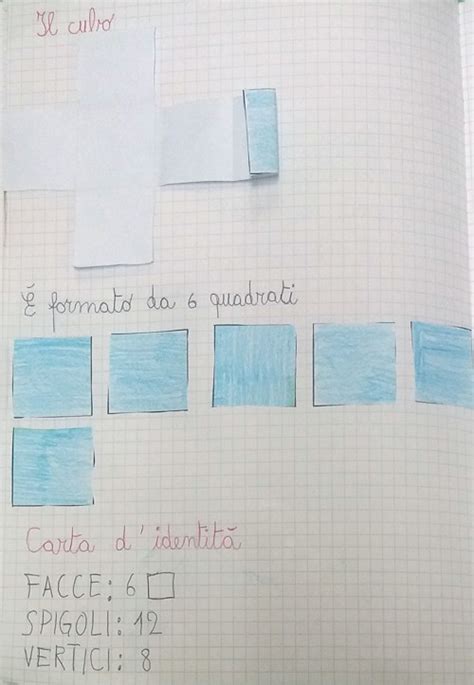 Il cubo
È formato da 6 quadrati
Carta d'identità
FACCE: 6 □
SPIGOLI: 12
VERTICI: 8